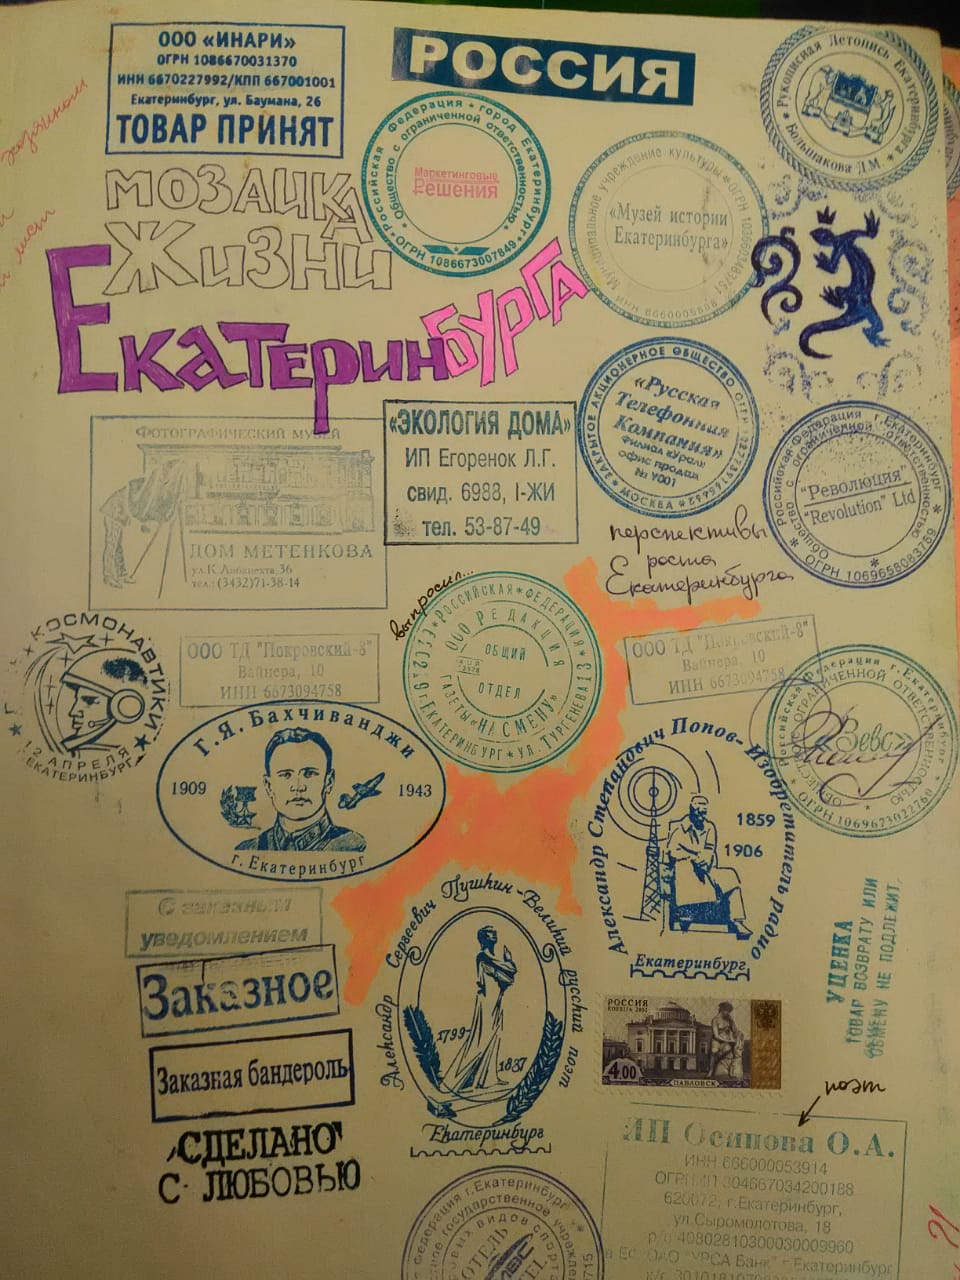 ООО «ИНАРИ»
ОГРН 1086670031370
ИНН 6670227992/КПП 667001001
Екатеринбург, ул. Баумана, 26
ТОВАР ПРИНЯТ
РОССИЯ
Рукописная Летопись Екатеринбурга
Большакова Д.М
Российская Федерация * город Екатеринбург *
Общество с ограниченной ответственностью
Маркетинговые
Решения
ОГРН 1086673007849
Муниципальное учреждение культуры
«Музей истории
Екатеринбурга»
ИНН 6660005888
МОЗАИКА
ЖИЗНИ
ЕКАТЕРИНБУРГА
ФОТОГРАФИЧЕСКИЙ МУЗЕЙ
ДОМ МЕТЕНКОВА
ул.К.Либкнехта,36
тел.: (3432)71-38-14
«ЭКОЛОГИЯ ДОМА»
ИП Егоренок Л.Г.
свид. 6988, I-ЖИ
тел. 53-87-49
ЗАКРЫТОЕ АКЦИОНЕРНОЕ ОБЩЕСТВО
«Русская
Телефонная
Компания»
Филиал «Урал»
офис продаж
№ У001
* МОСКВА *
Российская Федерация г.Екатеринбург
Общество с ограниченной ответственностью
"Революция"
"Revolution" Ltd
ОГРН 1069658083769
перспективы
роста
Екатеринбурга
выпросил...
РОССИЙСКАЯ * ФЕДЕРАЦИЯ
ООО РЕДАКЦИЯ
ГАЗЕТЫ «НА СМЕНУ»
ОБЩИЙ
ОТДЕЛ
г. ЕКАТЕРИНБУРГ * УЛ. ТУРГЕНЕВА 13
КОСМОНАВТИКИ
12 АПРЕЛЯ
ЕКАТЕРИНБУРГ
ООО ТД "Покровский-8"
Вайнера, 10
ИНН 6673094758
ООО ТД "Покровский-8"
Вайнера, 10
ИНН 6673094758
Российская Федерация г.Екатеринбург
С ОГРАНИЧЕННОЙ ОТВЕТСТВЕННОСТЬЮ
ОГРН 1069673022760
Г.Я. Бахчиванджи
1909
1943
г. Екатеринбург
Александр Степанович Попов- Изобретатель радио
1859
1906
Екатеринбург
С заказным
уведомлением
Заказное
Заказная бандероль
СДЕЛАНО
С ЛЮБОВЬЮ
Александр Сергеевич Пушкин - Великий русский поэт
1799-
1837
Екатеринбург
РОССИЯ
4.00
ПАВЛОВСК
УЦЕНКА
ТОВАР ВОЗВРАТУ ИЛИ
ОБМЕНУ НЕ ПОДЛЕЖИТ
поэт
ИП Осипова О.А.
ИНН 666000053914
ОГРНИП 304667034200188
620072, г.Екатеринбург,
ул.Сыромолотова, 18
р/с 40802810300030009960
ОАО "УРСА Банк" г Екатеринбург
Федерация г.Екатеринбург
государственное учреждение
видов спорта